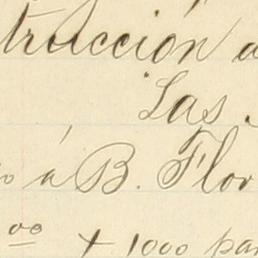 trucción a
Las
o á B. Flor
00 + 1000 par